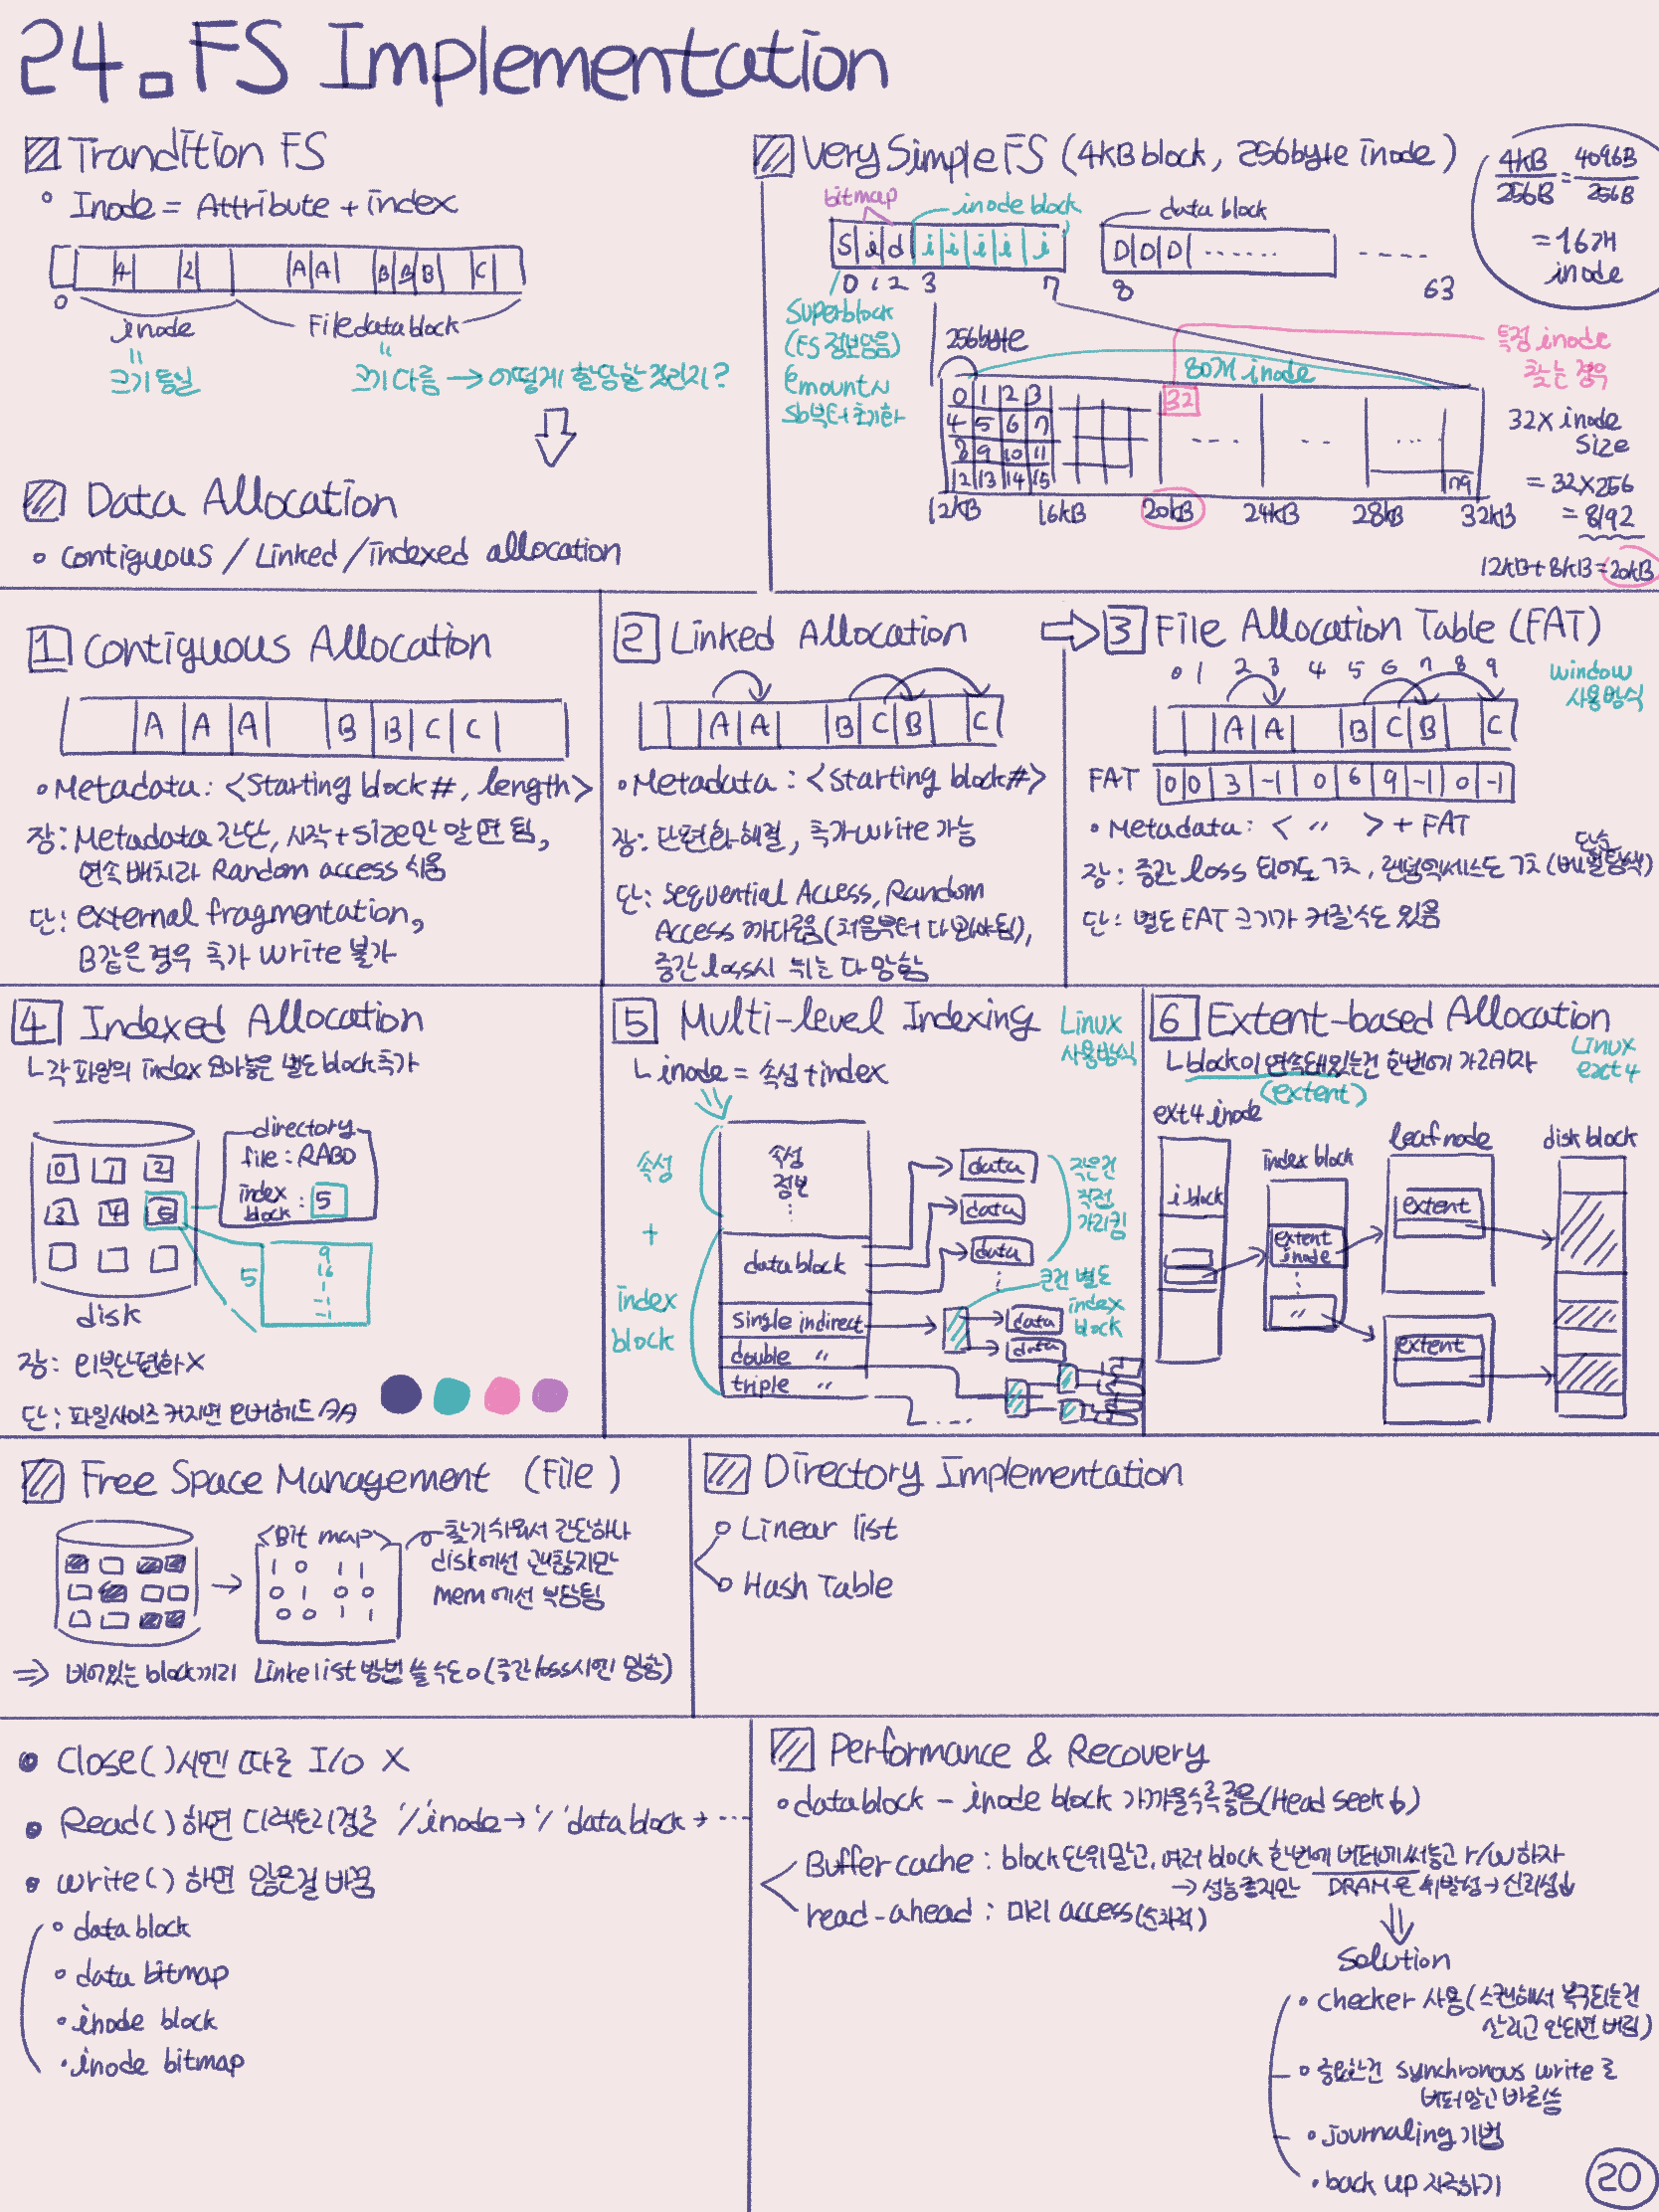 24. FS Implementation
Trandition FS
Inode = Attribute + index
4 2 A A B B B C
0
inode
File data block
"
"
크기 동일
크기 다름 → 어떻게 할당할 것인지?
Data Allocation
Contiguous / Linked / indexed allocation
Very Simple FS (4KB block, 256byte inode)
4KB/256B = 4096B/256B
= 16개
inode
bitmap
inode block
data block
S i d i i i i i
D D D ------
-----
0 1 2 3 7 8 63
Superblock
(FS 정보담음)
mount시
sb부터 초기화
256byte
80개 inode
특정 inode
찾는 경우
0 1 2 3
4 5 6 7
8 9 10 11
12 13 14 15
32
79
12KB 16KB 20KB 24KB 28KB 32KB
32X inode
size
= 32X256
= 8192
12KB+8KB=20KB
1 Contiguous Allocation
A A A B B C C
Metadata: <Starting block #, length>
장: Metadata 간단, 시작+size만 알면 됨,
연속배치라 Random access 쉬움
단: external fragmentation,
B같은 경우 추가 write 불가
2 Linked Allocation
A A B C B C
Metadata : <starting block#>
장: 단편화 해결, 추가 write 가능
단: Sequential Access, Random
Access 까다로움(처음부터 다 봐야됨),
중간 loss시 뒤는 다 망함
3 File Allocation Table (FAT)
0 1 2 3 4 5 6 7 8 9
window
사용방식
A A B C B C
FAT 0 0 3 -1 0 6 9 -1 0 -1
Metadata: < " > + FAT
단순
장: 중간 loss 되어도 ㄱㅊ, 랜덤엑세스도 ㄱㅊ (배열탐색)
단: 별도 FAT 크기가 커질수도 있음
4 Indexed Allocation
각 파일의 index 모아놓은 별도 block 추가
directory
file: RABO
index
block : 5
0 1 2
3 4 5
5
9
16
-1
disk
장: 외부단편화 X
단: 파일사이즈 커지면 오버헤드
5 Multi-level Indexing
Linux
사용방식
inode = 속성 + index
속성
+
index
block
속성
정보
data block
single indirect
double "
triple "
data
data
data
작은건
직접
가리킴
큰건 별도
index
block
data
data
6 Extent-based Allocation
block이 연속돼있는건 한번에 가리키자
(extent)
Linux
ext4
ext4 inode
i block
index block
extent
inode
"
leaf node
extent
extent
disk block
Free Space Management (File)
<Bit map>
1 0 1 1
0 1 0 0
0 0 1 1
찾기 쉬워서 간단하나
disk에선 괜찮지만
mem에선 부담됨
⇒ 비어있는 block끼리 Linke list 방법 쓸 수도 o (중간 loss시엔 망함)
Directory Implementation
Linear list
Hash Table
Close() 시엔 따로 I/O X
Read() 하면 디렉토리경로 '/' inode → '/' data block → ...
write() 하면 많은걸 바꿈
data block
data bitmap
inode block
inode bitmap
Performance & Recovery
data block - inode block 가까울수록 좋음 (Head seek)
Buffer cache : block단위말고, 여러 block 한번에 버퍼에 써놓고 r/w하자
→ 성능좋지만 DRAM은 휘발성 → 신뢰성↓
read-ahead : 미리 access (순차적)
Solution
checker 사용 (스캔해서 복구되는건
살리고 안되면 버림)
중요한건 synchronous write로
버퍼말고 바로씀
Journaling 기법
back up 자주하기
20